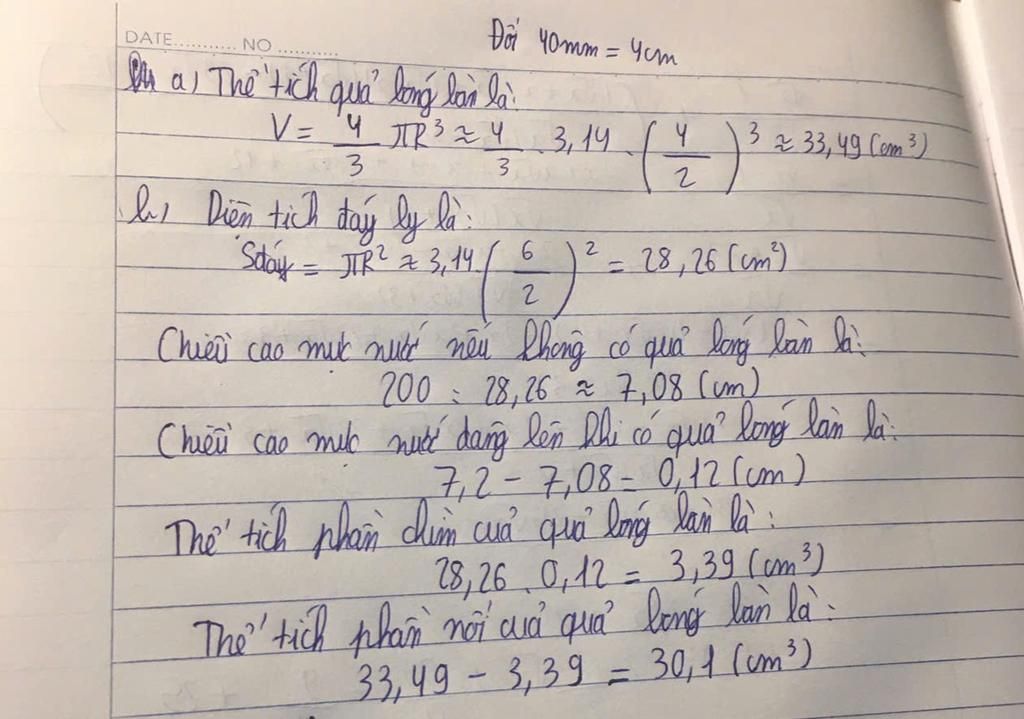 DATE........... NO ...........
Đổi 40mm = 4cm
a) Thể tích quả bóng bàn là:
V = 4/3 πR³ ≈ 4/3 . 3,14 . (4/2)³ ≈ 33,49 (cm³)
b) Diện tích đáy ly là:
Sđáy = πR² ≈ 3,14 (6/2)² = 28,26 (cm²)
Chiều cao mực nước nếu không có quả bóng bàn là:
200 : 28,26 ≈ 7,08 (cm)
Chiều cao mực nước dâng lên khi có quả bóng bàn là:
7,2 - 7,08 = 0,12 (cm)
Thể tích phần chìm của quả bóng bàn là:
28,26 . 0,12 = 3,39 (cm³)
Thể tích phần nổi của quả bóng bàn là:
33,49 - 3,39 = 30,1 (cm³)